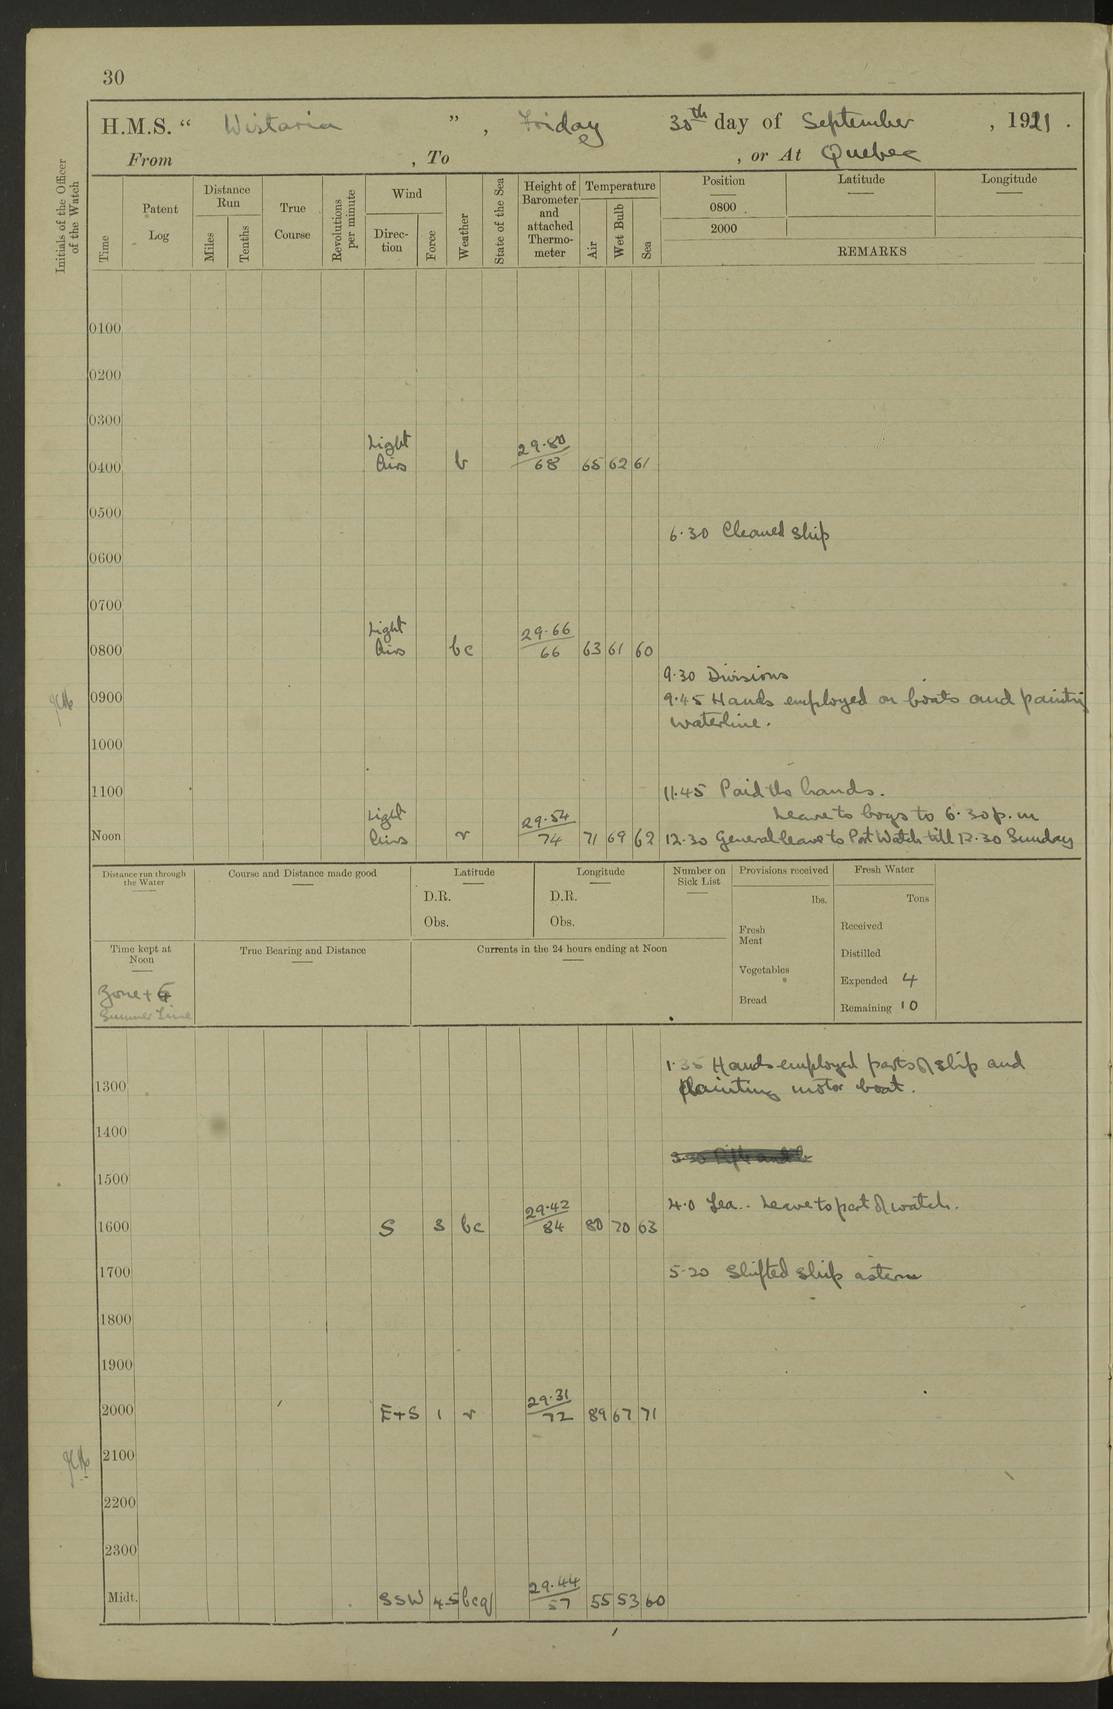 30
H.M.S. " Wistaria " , Friday 30th day of September , 1921 .
From , To , or At Quebec
Initials of the Officer of the Watch
Time
Patent Log
Distance Run
Miles
Tenths
True Course
Revolutions per minute
Wind
Direc-tion
Force
Weather
State of the Sea
Height of Barometer and attached Thermo-meter
Temperature
Air
Wet Bulb
Sea
Position
Latitude
Longitude
0800
2000
REMARKS
0100
0200
0300
Light 29.80
0400 Airs b 68 65 62 61
0500
6.30 Cleaned Ship
0600
0700
Light 29.66
0800 Airs bc 66 63 61 60
9.30 Divisions
0900 9.45 Hands employed on boats and painting
waterline.
1000
1100 11.45 Paid the hands.
Light 29.54 Leave to boys to 6.30 p.m
Noon Airs r 74 71 69 62 12.30 General leave to Port Watch till 12.30 Sunday
Distance run through the Water
Course and Distance made good
Latitude
D.R.
Obs.
Longitude
D.R.
Obs.
Number on Sick List
Provisions received
lbs.
Fresh Meat
Vegetables
Bread
Fresh Water
Tons
Received
Distilled
Expended 4
Remaining 10
Time kept at Noon
Zone +
Summer Time
True Bearing and Distance
Currents in the 24 hours ending at Noon
1.35 Hands employed parts of ship and
1300 painting motor boat.
1400
1500
29.42 4.0 Tea.. Leave to part of watch.
1600 S 3 bc 84 80 70 63
1700 5.20 Shifted ship astern
1800
1900
29.31
2000 E+S 1 r 72 89 67 71
2100
2200
2300
29.44
Midt. SSW 4.5 bcq 57 55 53 60